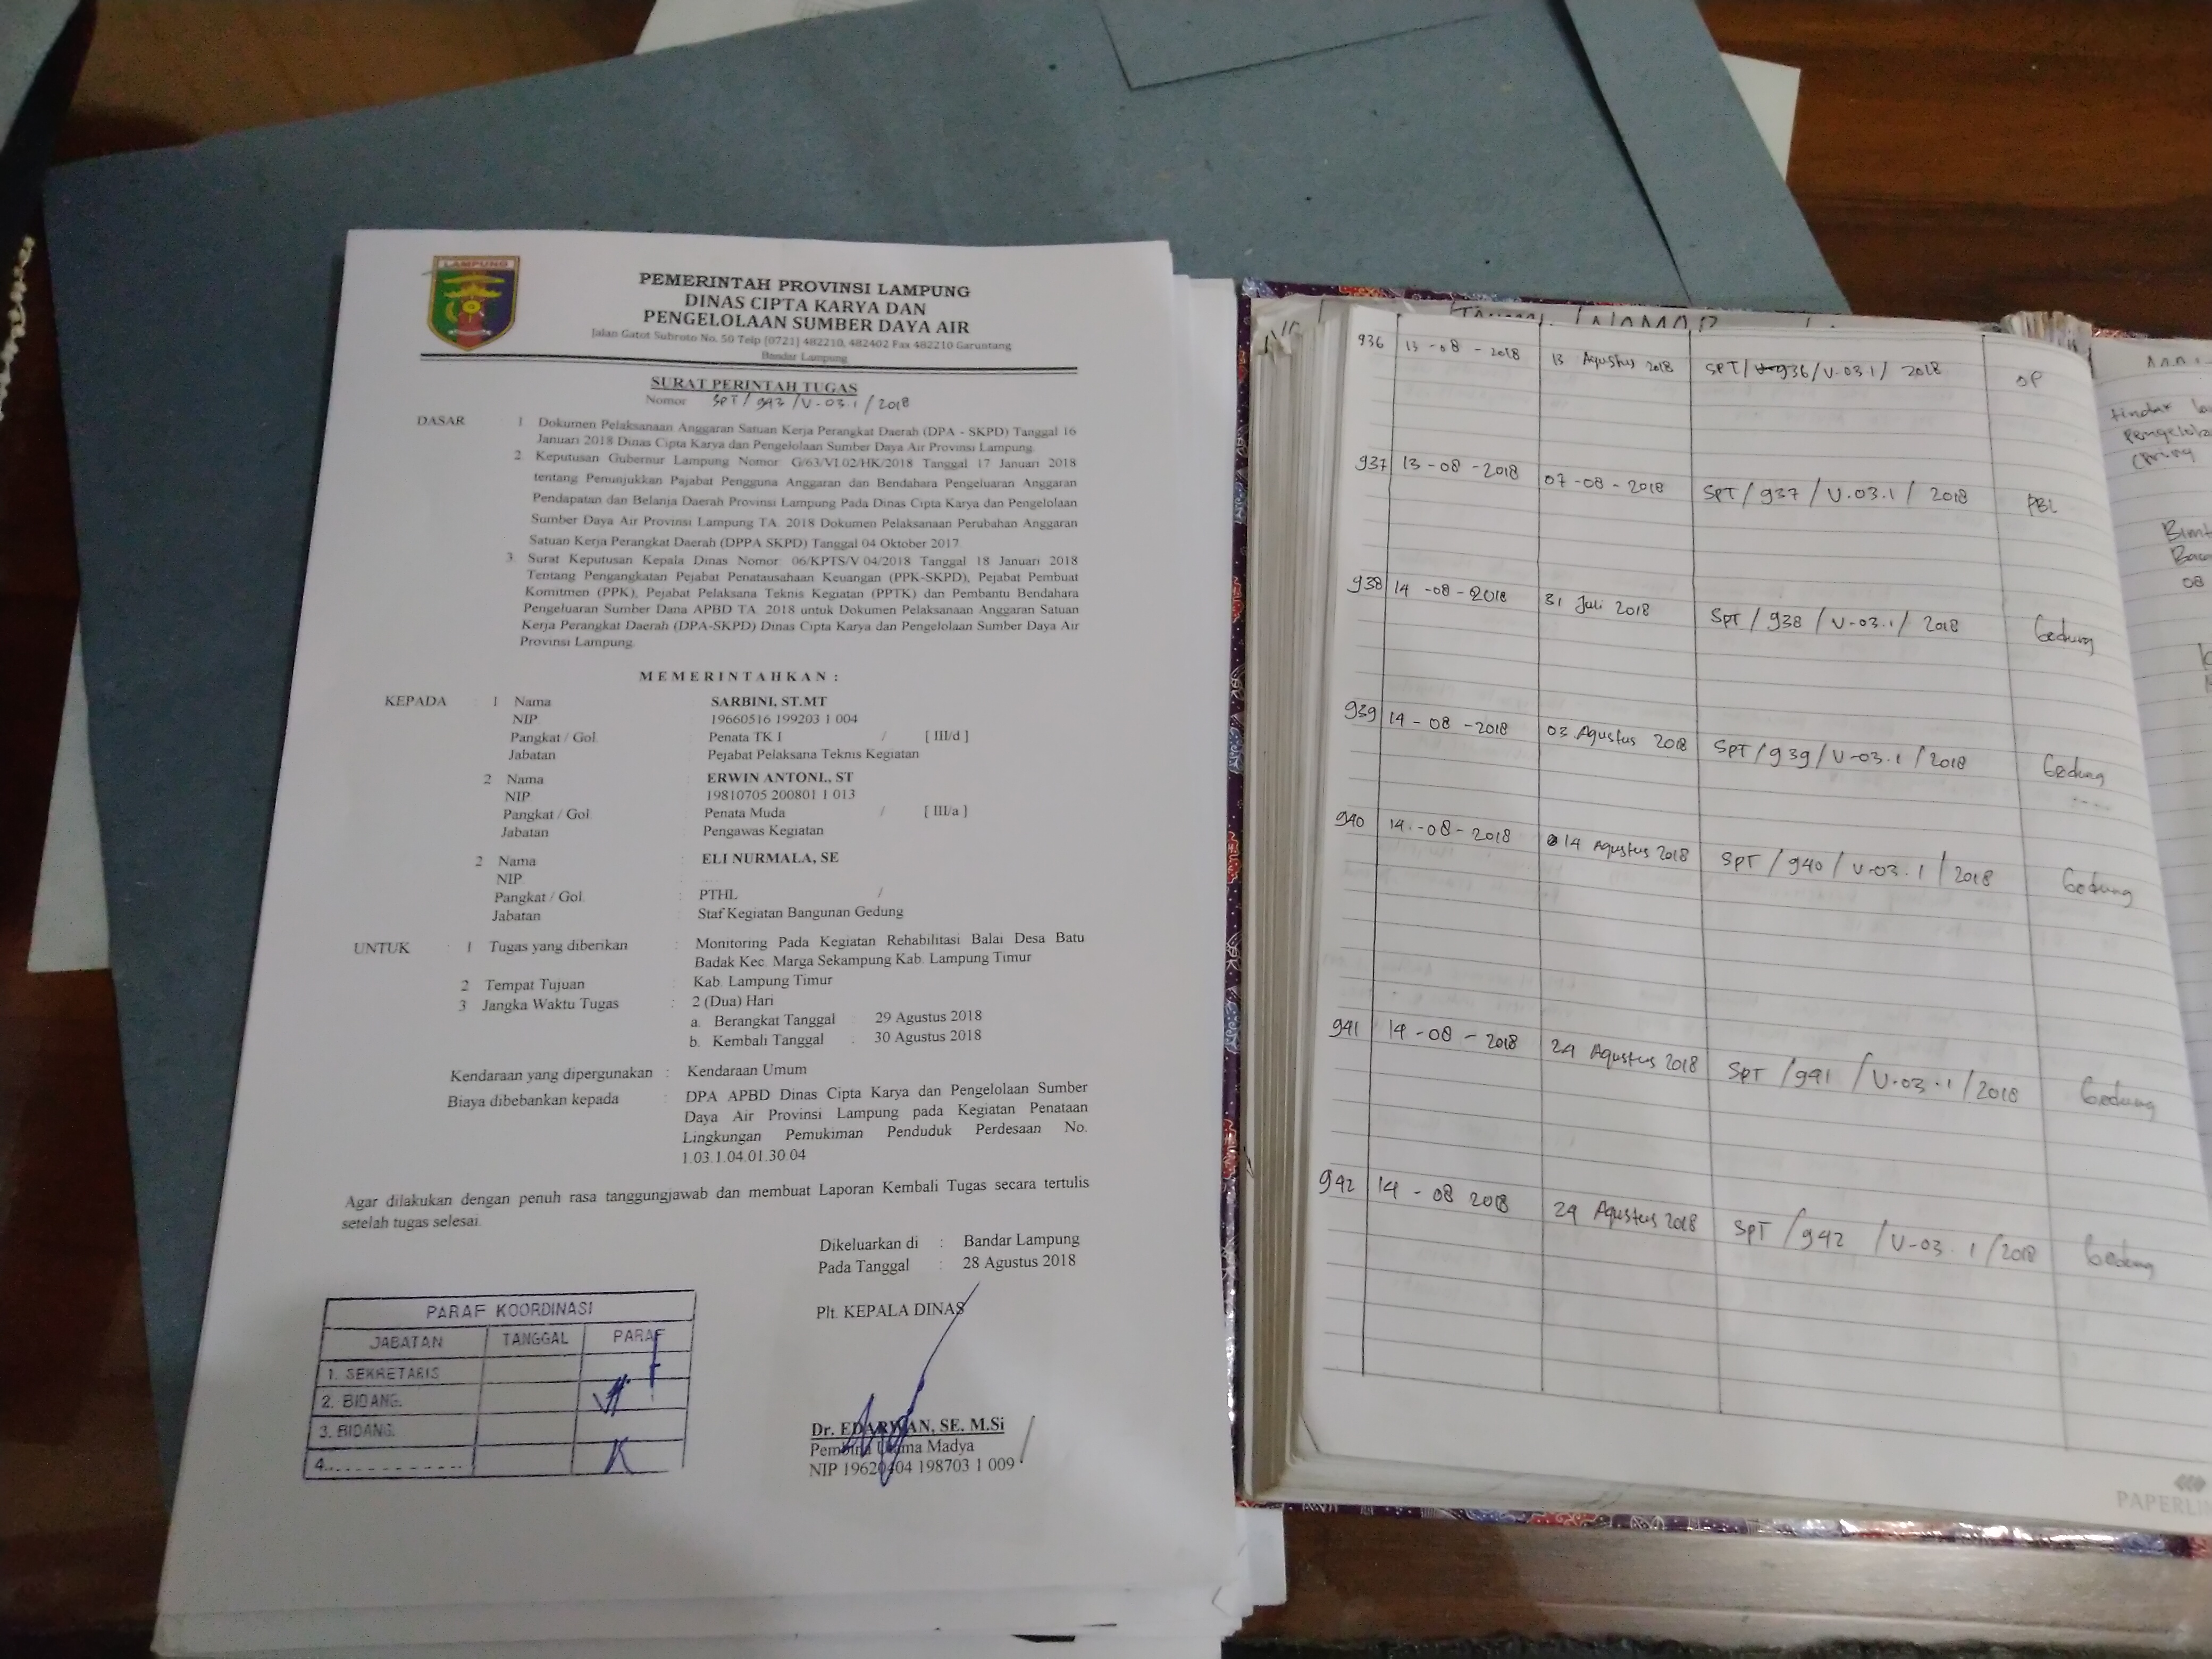 LAMPUNG
PEMERINTAH PROVINSI LAMPUNG
DINAS CIPTA KARYA DAN
PENGELOLAAN SUMBER DAYA AIR
Jalan Gatot Subroto No. 50 Telp (0721) 482210, 482402 Fax 482210 Garuntang
Bandar Lampung
SURAT PERINTAH TUGAS
Nomor SPT / 943 / V-03.1 / 2018
DASAR : 1 Dokumen Pelaksanaan Anggaran Satuan Kerja Perangkat Daerah (DPA - SKPD) Tanggal 16
Januari 2018 Dinas Cipta Karya dan Pengelolaan Sumber Daya Air Provinsi Lampung
2 Keputusan Gubernur Lampung Nomor G/63/VI.02/HK/2018 Tanggal 17 Januari 2018
tentang Penunjukkan Pajabat Pengguna Anggaran dan Bendahara Pengeluaran Anggaran
Pendapatan dan Belanja Daerah Provinsi Lampung Pada Dinas Cipta Karya dan Pengelolaan
Sumber Daya Air Provinsi Lampung TA. 2018 Dokumen Pelaksanaan Perubahan Anggaran
Satuan Kerja Perangkat Daerah (DPPA SKPD) Tanggal 04 Oktober 2017.
3 Surat Keputusan Kepala Dinas Nomor 06/KPTS/V.04/2018 Tanggal 18 Januari 2018
Tentang Pengangkatan Pejabat Penatausahaan Keuangan (PPK-SKPD), Pejabat Pembuat
Komitmen (PPK), Pejabat Pelaksana Teknis Kegiatan (PPTK) dan Pembantu Bendahara
Pengeluaran Sumber Dana APBD TA. 2018 untuk Dokumen Pelaksanaan Anggaran Satuan
Kerja Perangkat Daerah (DPA-SKPD) Dinas Cipta Karya dan Pengelolaan Sumber Daya Air
Provinsi Lampung.
MEMERINTAHKAN :
KEPADA : 1 Nama SARBINI, ST.MT
NIP 19660516 199203 1 004
Pangkat / Gol. Penata TK I / [ III/d ]
Jabatan Pejabat Pelaksana Teknis Kegiatan
2 Nama : ERWIN ANTONI., ST
NIP 19810705 200801 1 013
Pangkat / Gol : Penata Muda / [ III/a ]
Jabatan Pengawas Kegiatan
2 Nama : ELI NURMALA, SE
NIP. : ....
Pangkat / Gol. : PTHL /
Jabatan : Staf Kegiatan Bangunan Gedung
UNTUK : 1 Tugas yang diberikan : Monitoring Pada Kegiatan Rehabilitasi Balai Desa Batu
Badak Kec. Marga Sekampung Kab. Lampung Timur
2 Tempat Tujuan : Kab. Lampung Timur
3 Jangka Waktu Tugas : 2 (Dua) Hari
a. Berangkat Tanggal : 29 Agustus 2018
b. Kembali Tanggal : 30 Agustus 2018
Kendaraan yang dipergunakan : Kendaraan Umum
Biaya dibebankan kepada : DPA APBD Dinas Cipta Karya dan Pengelolaan Sumber
Daya Air Provinsi Lampung pada Kegiatan Penataan
Lingkungan Pemukiman Penduduk Perdesaan No.
1.03.1.04.01.30.04
Agar dilakukan dengan penuh rasa tanggungjawab dan membuat Laporan Kembali Tugas secara tertulis
setelah tugas selesai.
Dikeluarkan di : Bandar Lampung
Pada Tanggal : 28 Agustus 2018
Plt. KEPALA DINAS
Dr. EDARWAN, SE. M.Si
Pembina Utama Madya
NIP 19620404 198703 1 009
PARAF KOORDINASI
JABATAN TANGGAL PARAF
1. SEKRETARIS
2. BIDANG.
3. BIDANG.
4..............
NOMOR
936 13-08-2018 13 Agustus 2018 SPT/936/V-03.1/2018 OP
937 13-08-2018 07-08-2018 SPT/937/V.03.1/2018 PBL
938 14-08-2018 31 Juli 2018 SPT/938/V-03.1/2018 Gedung
939 14-08-2018 03 Agustus 2018 SPT/939/V-03.1/2018 Gedung
940 14-08-2018 14 Agustus 2018 SPT/940/V-03.1/2018 Gedung
941 14-08-2018 24 Agustus 2018 SPT/941/V-03.1/2018 Gedung
942 14-08 2018 24 Agustus 2018 SPT/942/V-03.1/2018 Gedung
08